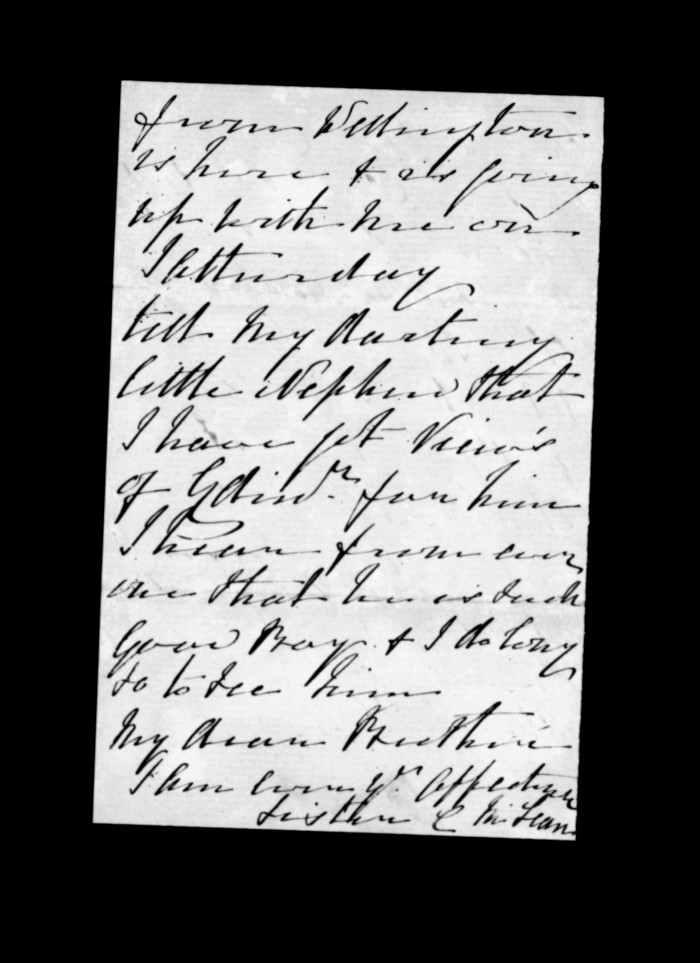 from Wellington.
is here & is going
up with me on
Satturday
tell My darling
little Nephew that
I have got View's
of Edinr. for him
I hear from every
one that he is such
good Boy & I do long
so to see him
My dear Brother
I am ever yr. Affectnate
Sister C McLean